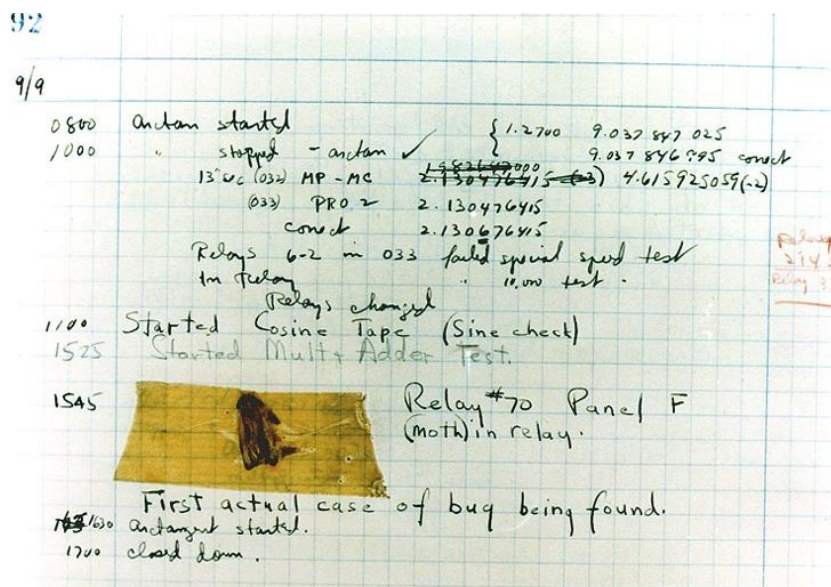 92
9/9
0800 arctan started { 1.2700 9.037 847 025
1000 " stopped - arctan ✓ 9.037 846 995 correct
13" sec (032) MP - MC 2.130476415 (-3) 4.615925059(-2)
(033) PRO 2 2.130476415
correct 2.130676415
Relays 6-2 in 033 failed special speed test
In Relay " 10,000 test.
Relays changed
1100 Started Cosine Tape (Sine check)
1525 Started Mult+ Adder Test.
1545 Relay #70 Panel F
(moth) in relay.
First actual case of bug being found.
1630 arctangent started.
1700 closed down.
Relay
Relay 3